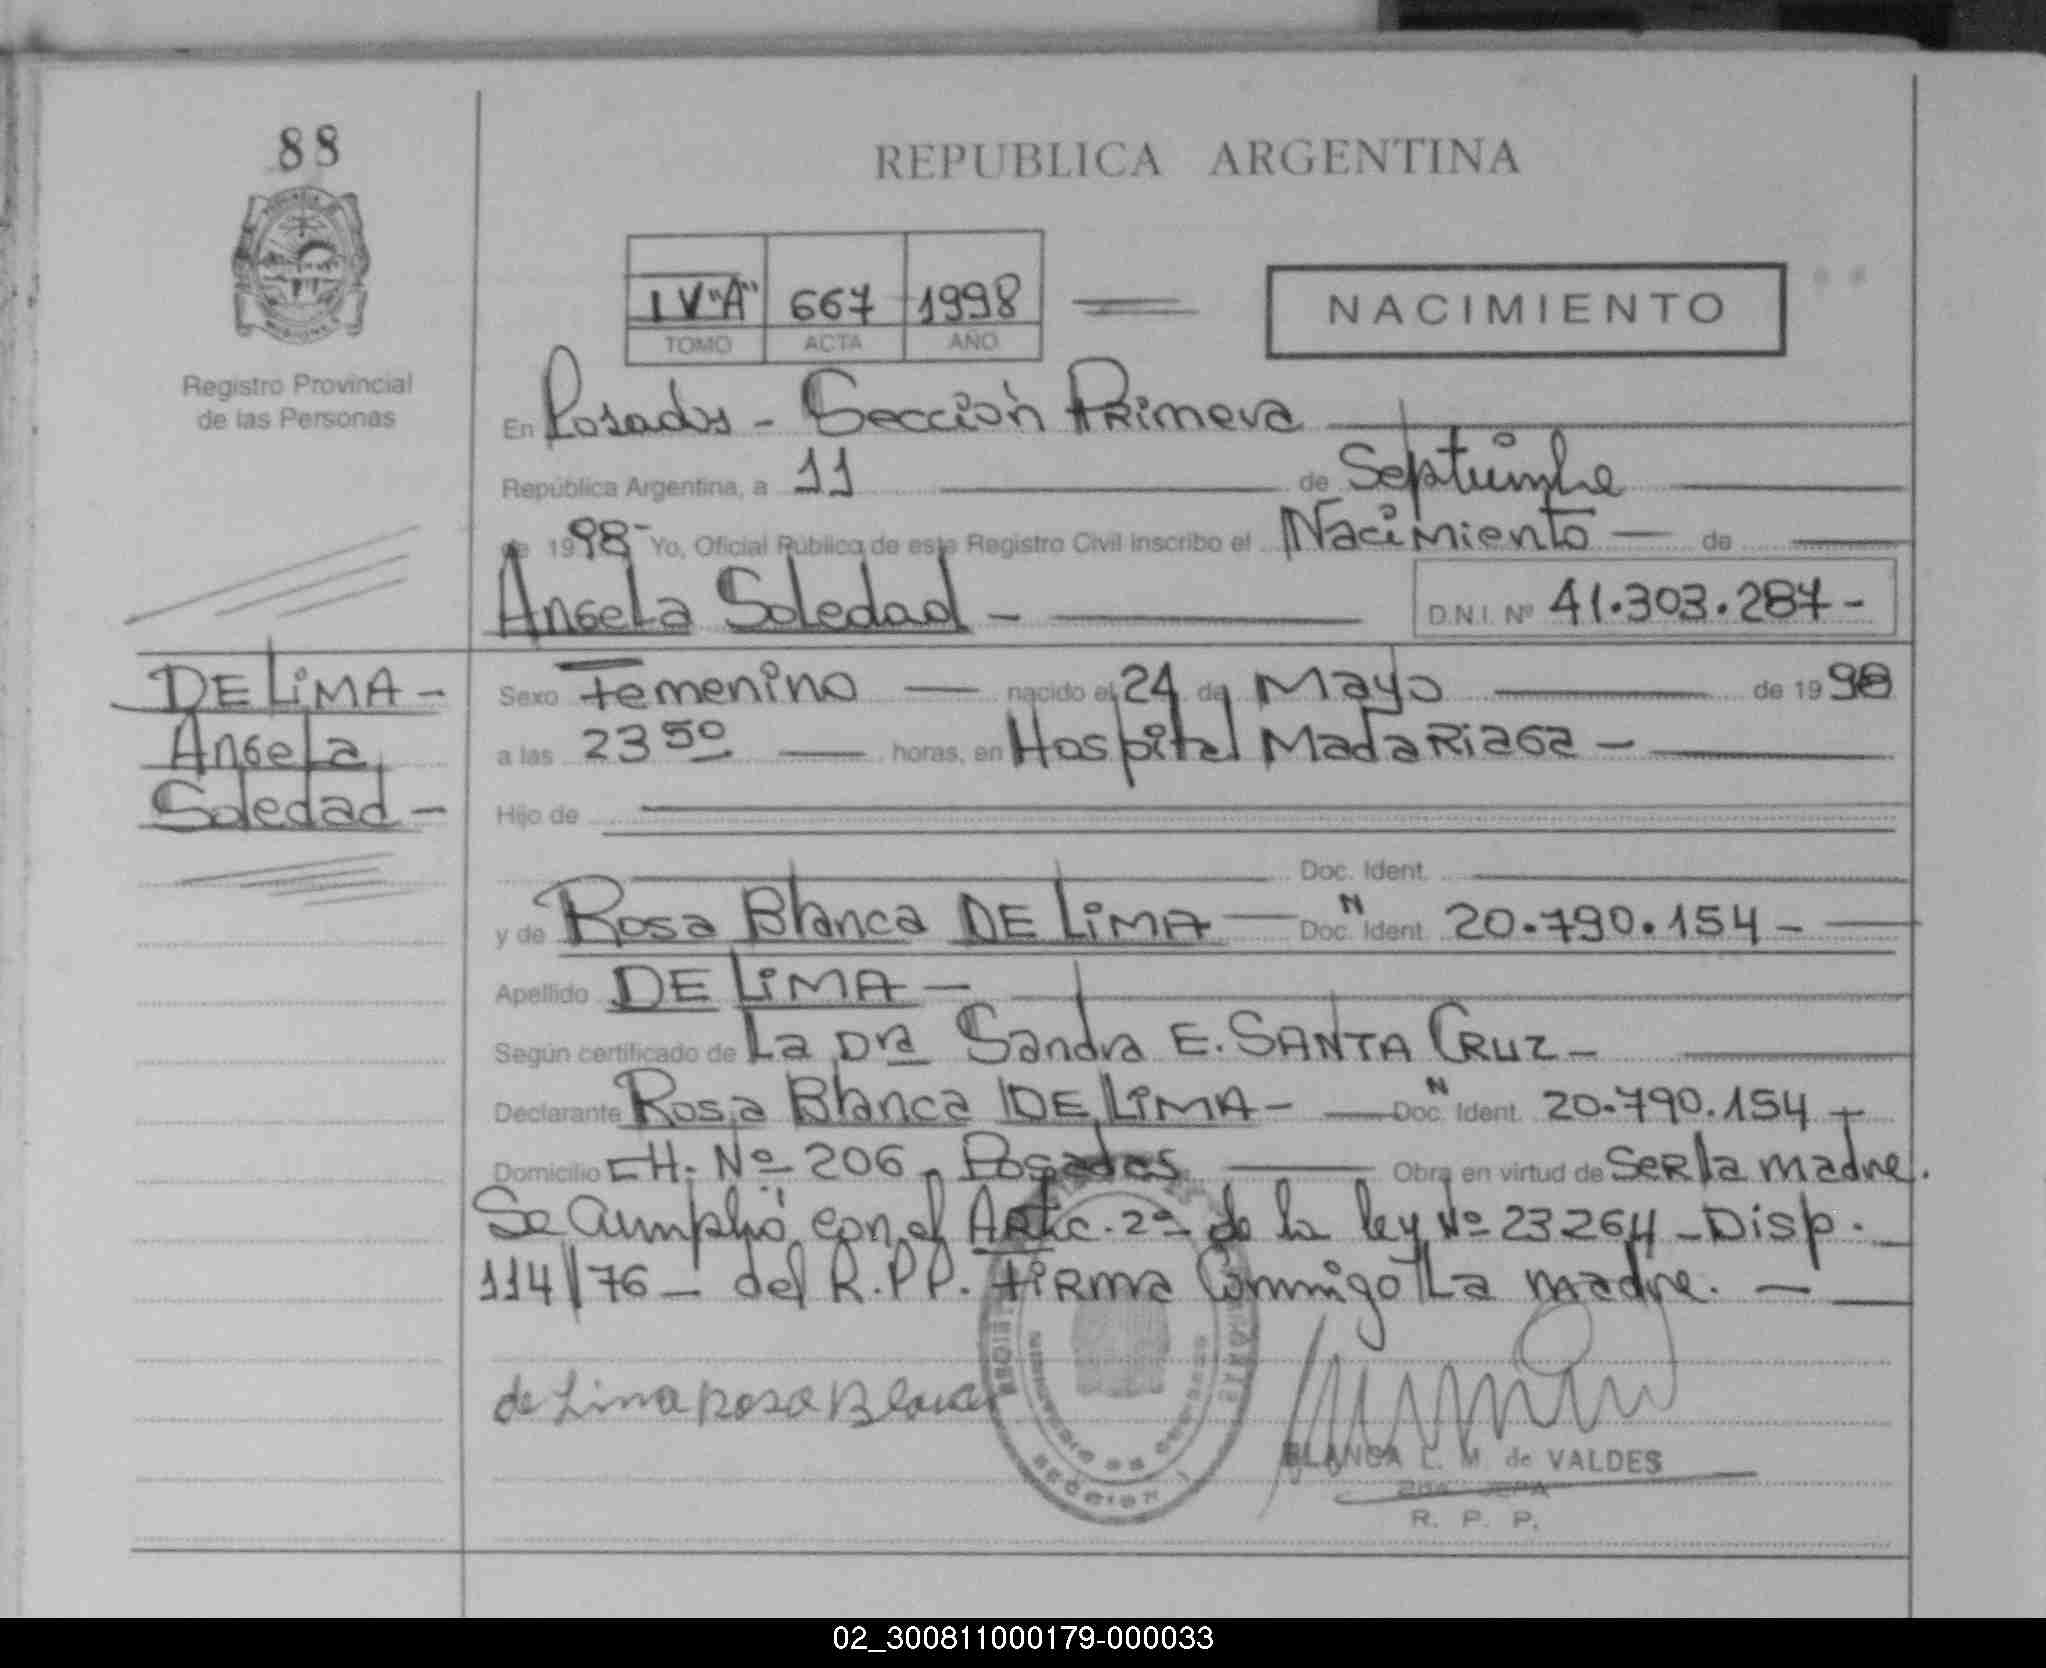 88
REPUBLICA ARGENTINA
IV"A" 667 1998
TOMO ACTA AÑO
NACIMIENTO
Registro Provincial
de las Personas
En Posadas - Sección Primera
República Argentina, a 11 de Septiembre
de 1998- Yo, Oficial Público de este Registro Civil inscribo el Nacimiento - de
Angela Soledad - D.N.I. Nº 41.303.287-
DE LiMA -
Angela
Soledad -
Sexo Femenino - nacido el 24 de Mayo de 1998
a las 23 50 horas, en Hospital Madariaga -
Hijo de
Doc. Ident.
y de Rosa Blanca DE LiMA - Doc. N Ident. 20.790.154 -
Apellido DE LiMA -
Según certificado de La Dra Sandra E. SANTA CRUZ -
Declarante Rosa Blanca DE LiMA - Doc. N Ident. 20.790.154 -
Domicilio CH. Nº 206 - Posadas Obra en virtud de Ser la madre.
Se cumplió con el Artic. 2º de la ley Nº 23264 - Disp.
114/76 - del R.P.P. Firma Conmigo La madre. -
de Lima Rosa Blanca
BLANCA L. M. de VALDES
R. P. P.
SECCION 1
02_300811000179-000033